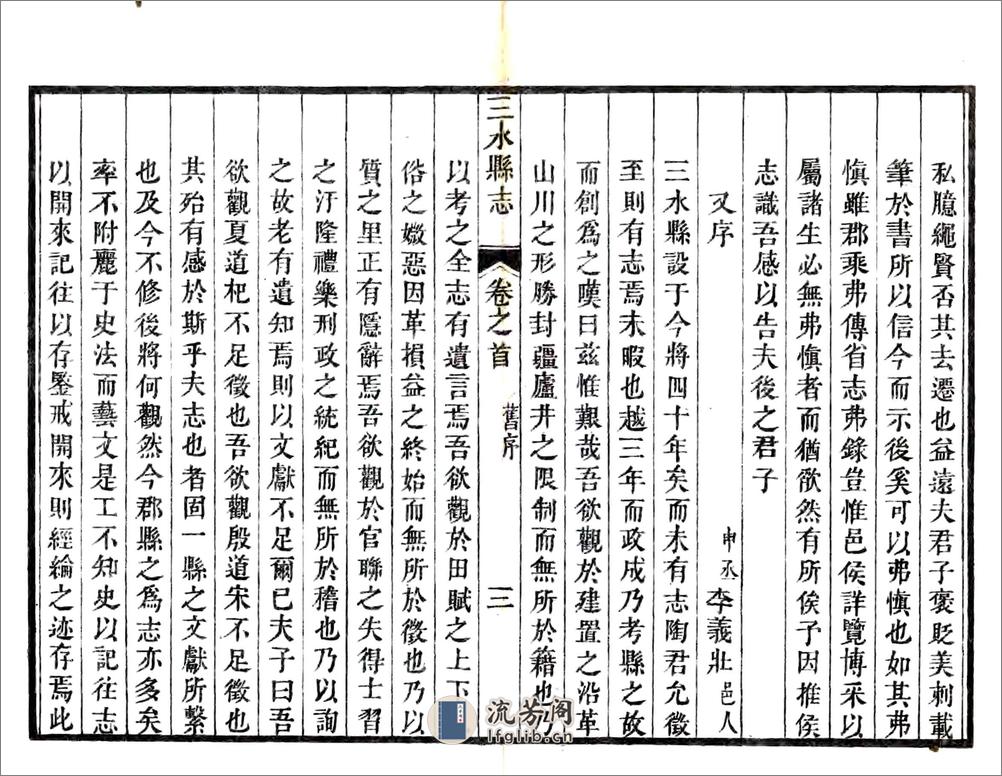 私臆繩賢否其去遷也益遠夫君子褒貶美刺載
筆於書所以信今而示後奚可以弗慎也如其弗
慎雖郡乘弗傳省志弗錄豈惟邑侯詳覽博采以
屬諸生必無弗慎者而猶欿然有所俟予因推侯
志識吾感以告夫後之君子
又序
申丞李義壯邑人
三水縣設于今將四十年矣而未有志陶君允徵
至則有志焉未暇也越三年而政成乃考縣之故
而創爲之嘆曰茲惟艱哉吾欲觀於建置之沿革
山川之形勝封疆廬井之限制而無所於籍也乃
三水縣志
卷之首
舊序
三
以考之全志有遺言焉吾欲觀於田賦之上下
俗之媺惡因革損益之終始而無所於徵也乃以
質之里正有隱辭焉吾欲觀於官聯之失得士習
之汙隆禮樂刑政之統紀而無所於稽也乃以詢
之故老有遺知焉則以文獻不足爾已夫子曰吾
欲觀夏道杞不足徵也吾欲觀殷道宋不足徵也
其殆有感於斯乎夫志也者固一縣之文獻所繫
也及今不修後將何觀然今郡縣之爲志亦多矣
率不附麗于史法而藝文是工不知史以記往志
以開來記往以存鑒戒開來則經綸之迹存焉此
流芳阁
lfglib.cn